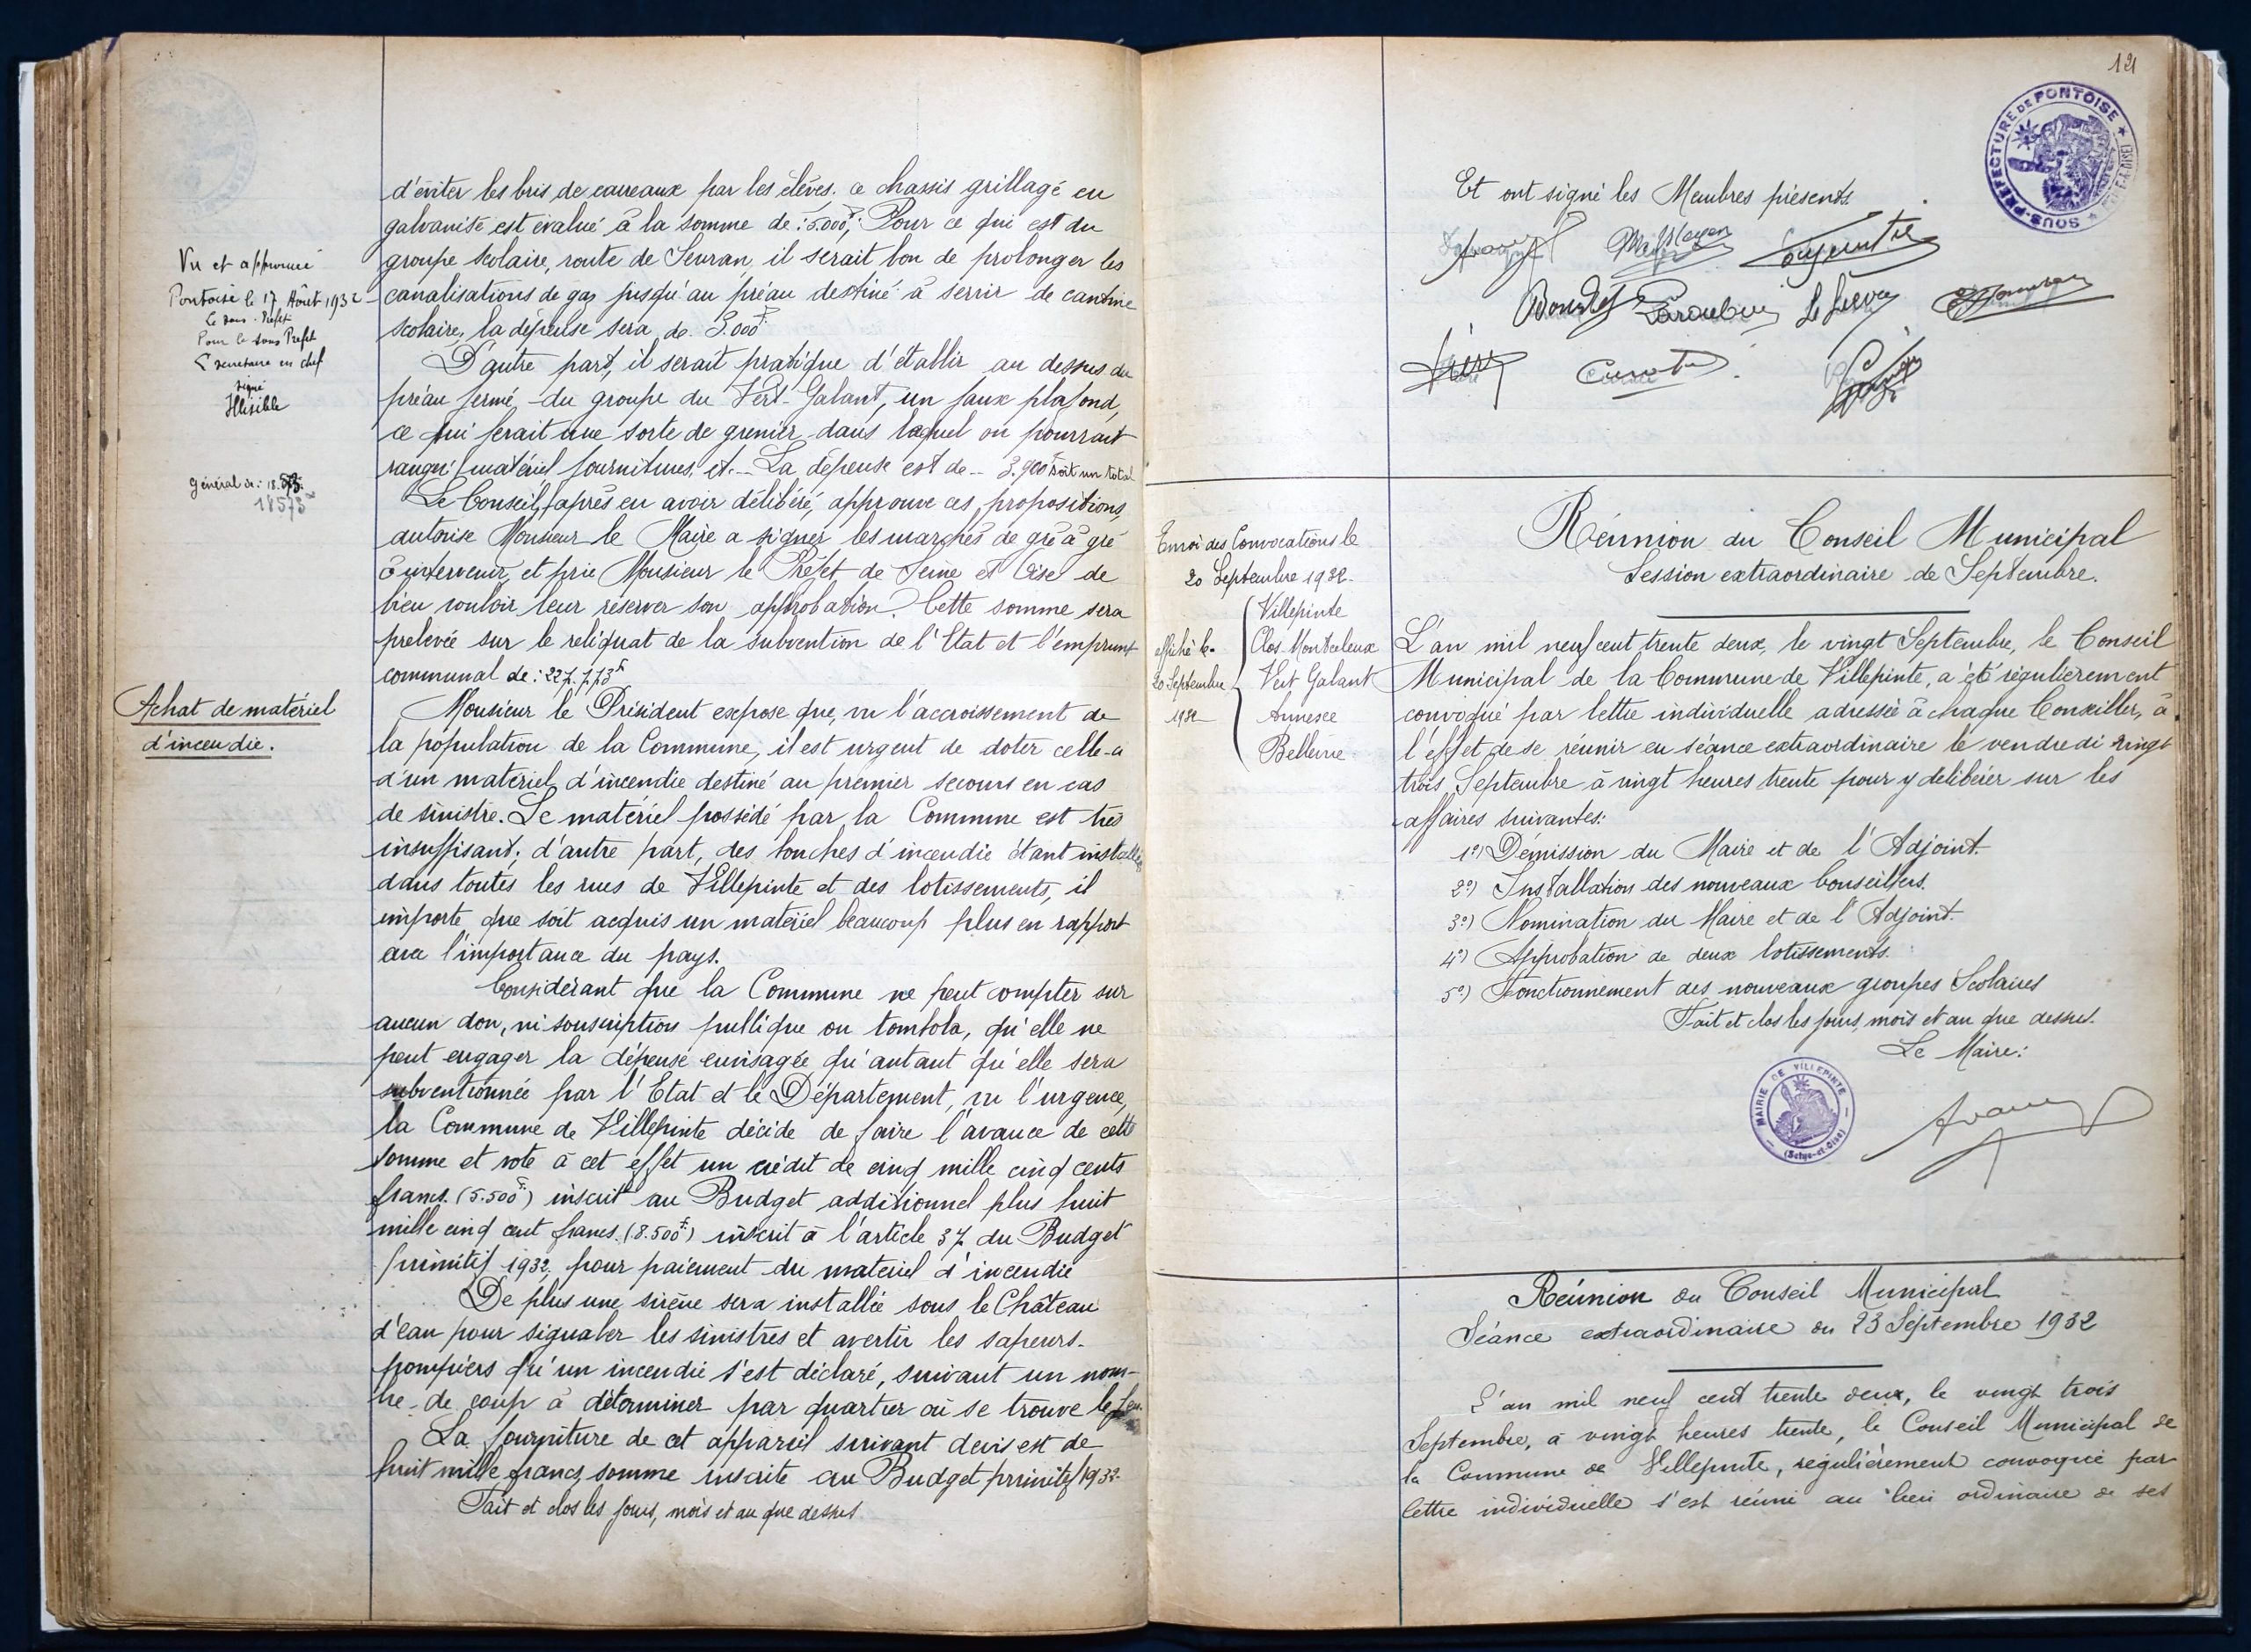 d'éviter les bris de carreaux par les élèves. ce chassis grillagé en
galvanisé est évalué à la somme de : 5.000F; Pour ce qui est du
groupe scolaire, route de Sevran, il serait bon de prolonger les
canalisations de gaz jusqu'au préau destiné à servir de cantine
scolaire, la dépense sera de 3.000F
D'autre part, il serait pratique d'établir au dessus du
préau fermé du groupe du Vert-Galant, un faux plafond,
ce qui ferait une sorte de grenier dans lequel on pourrait
ranger matériel fournitures, et.. La dépense est de .. 3.900F soit un total
Le Conseil, après en avoir délibéré, approuve ces propositions,
autorise Monsieur le Maire a signer les marchés de gré à gré
à intervenir, et prie Monsieur le Préfet de Seine et Oise de
bien vouloir leur réserver son approbation. Cette somme sera
prelevée sur le reliquat de la subvention de l'Etat et l'emprunt
communal de : 227.773F
Vu et approuvé
Pontoise le 17 Août 1932
Le Sous-Préfet
Pour le Sous Préfet
Le secrétaire en chef
signé
Illisible
général de : 18.573.
18573
Achat de matériel
d'incendie.
Monsieur le Président expose que, vu l'accroissement de
la population de la Commune, il est urgent de doter celle-ci
d'un matériel d'incendie destiné au premier secours en cas
de sinistre. Le matériel possédé par la Commune est très
insuffisant; d'autre part, des bouches d'incendie étant installées
dans toutes les rues de Villepinte et des lotissements, il
importe que soit acquis un matériel beaucoup plus en rapport
avec l'importance du pays.
Considérant que la Commune ne peut compter sur
aucun don, ni souscription publique ou tombola, qu'elle ne
peut engager la dépense envisagée qu'autant qu'elle sera
subventionnée par l'Etat et le Département, vu l'urgence,
la Commune de Villepinte décide de faire l'avance de cette
somme et vote à cet effet un crédit de cinq mille cinq cents
francs. (5.500F) inscrit au Budget additionnel plus huit
mille cinq cent francs. (8.500F) inscrit à l'article 37 du Budget
primitif 1932, pour paiement du matériel d'incendie
De plus une sirène sera installée sous le Château
d'eau pour signaler les sinistres et avertir les sapeurs-
pompiers qu'un incendie s'est déclaré, suivant un nom-
bre de coup à déterminer par quartier où se trouve le feu.
La fourniture de cet appareil suivant devis est de
huit mille francs, somme inscrite au Budget primitif 1932.
Fait et clos les jours, mois et an que dessus
121
SOUS-PRÉFECTURE DE PONTOISE
Et ont signé les Membres présents.
Réunion du Conseil Municipal
Session extraordinaire de Septembre.
Envoi des Convocations le
20 Septembre 1932.
affiché le
20 Septembre
1932
Villepinte
Clos Montceleux
Vert Galant
Annexe
Bellevue
L'an mil neuf cent trente deux, le vingt Septembre, le Conseil
Municipal de la Commune de Villepinte, a été régulièrement
convoqué par lettre individuelle adressée à chaque Conseiller, à
l'effet de se réunir en séance extraordinaire le vendredi vingt
trois Septembre à vingt heures trente pour y delibérer sur les
affaires suivantes :
1°) Démission du Maire et de l'Adjoint.
2°) Installation des nouveaux Conseillers.
3°) Nomination du Maire et de l'Adjoint.
4°) Approbation de deux lotissements.
5°) Fonctionnement des nouveaux groupes Scolaires
Fait et clos les jours, mois et an que dessus.
Le Maire :
MAIRIE DE VILLEPINTE
(Seine-et-Oise)
Réunion du Conseil Municipal
Séance extraordinaire du 23 Septembre 1932
L'an mil neuf cent trente deux, le vingt trois
Septembre, à vingt heures trente, le Conseil Municipal de
la Commune de Villepinte, régulièrement convoqué par
lettre individuelle s'est réuni au lieu ordinaire de ses